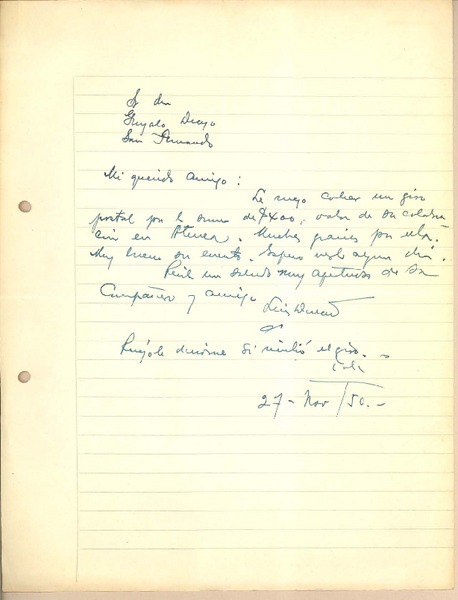 Sr don
Gonzalo Drago
San Fernando
Mi querido amigo:
Le ruego cobrar un giro
postal por la suma de $400, valor de su colabora
ción en Atenea. Muchas gracias por ella.
Muy bueno su cuento. Espero verlo algun día.
Recib un saludo muy apretado de su
Compañero y amigo Luis Durand
Ruégole decirme si recibió el giro.
Vale
27-Nov/50.-